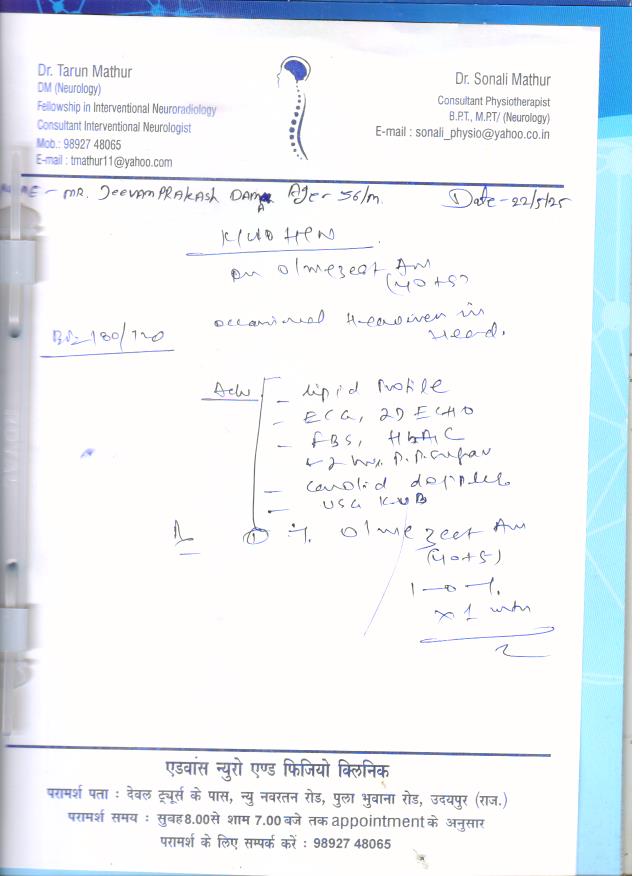 Dr. Tarun Mathur
DM (Neurology)
Fellowship in Interventional Neuroradiology
Consultant Interventional Neurologist
Mob.: 98927 48065
E-mail : tmathur11@yahoo.com
Dr. Sonali Mathur
Consultant Physiotherapist
B.P.T., M.P.T/ (Neurology)
E-mail : sonali_physio@yahoo.co.in
MR. JEEVANPRAKASH Age - 56/m Date - 22/5/25
K/C/O HTN
on Olmezest Am
(40+5)
occasional Heaviness in
Head.
BP - 180/120
Adv
- lipid Profile
- ECG, 2D ECHO
- FBS, HbA1C
2 hrs. P.P. Sugar
- carotid doppler
- USG KUB
① Olmezest Am
(40+5)
1-0-1
x 1 mth
एडवांस न्युरो एण्ड फिजियो क्लिनिक
परामर्श पता : देवल ट्यूर्स के पास, न्यु नवरतन रोड, पुला भुवाना रोड, उदयपुर (राज.)
परामर्श समय : सुबह 8.00 से शाम 7.00 बजे तक appointment के अनुसार
परामर्श के लिए सम्पर्क करें : 98927 48065